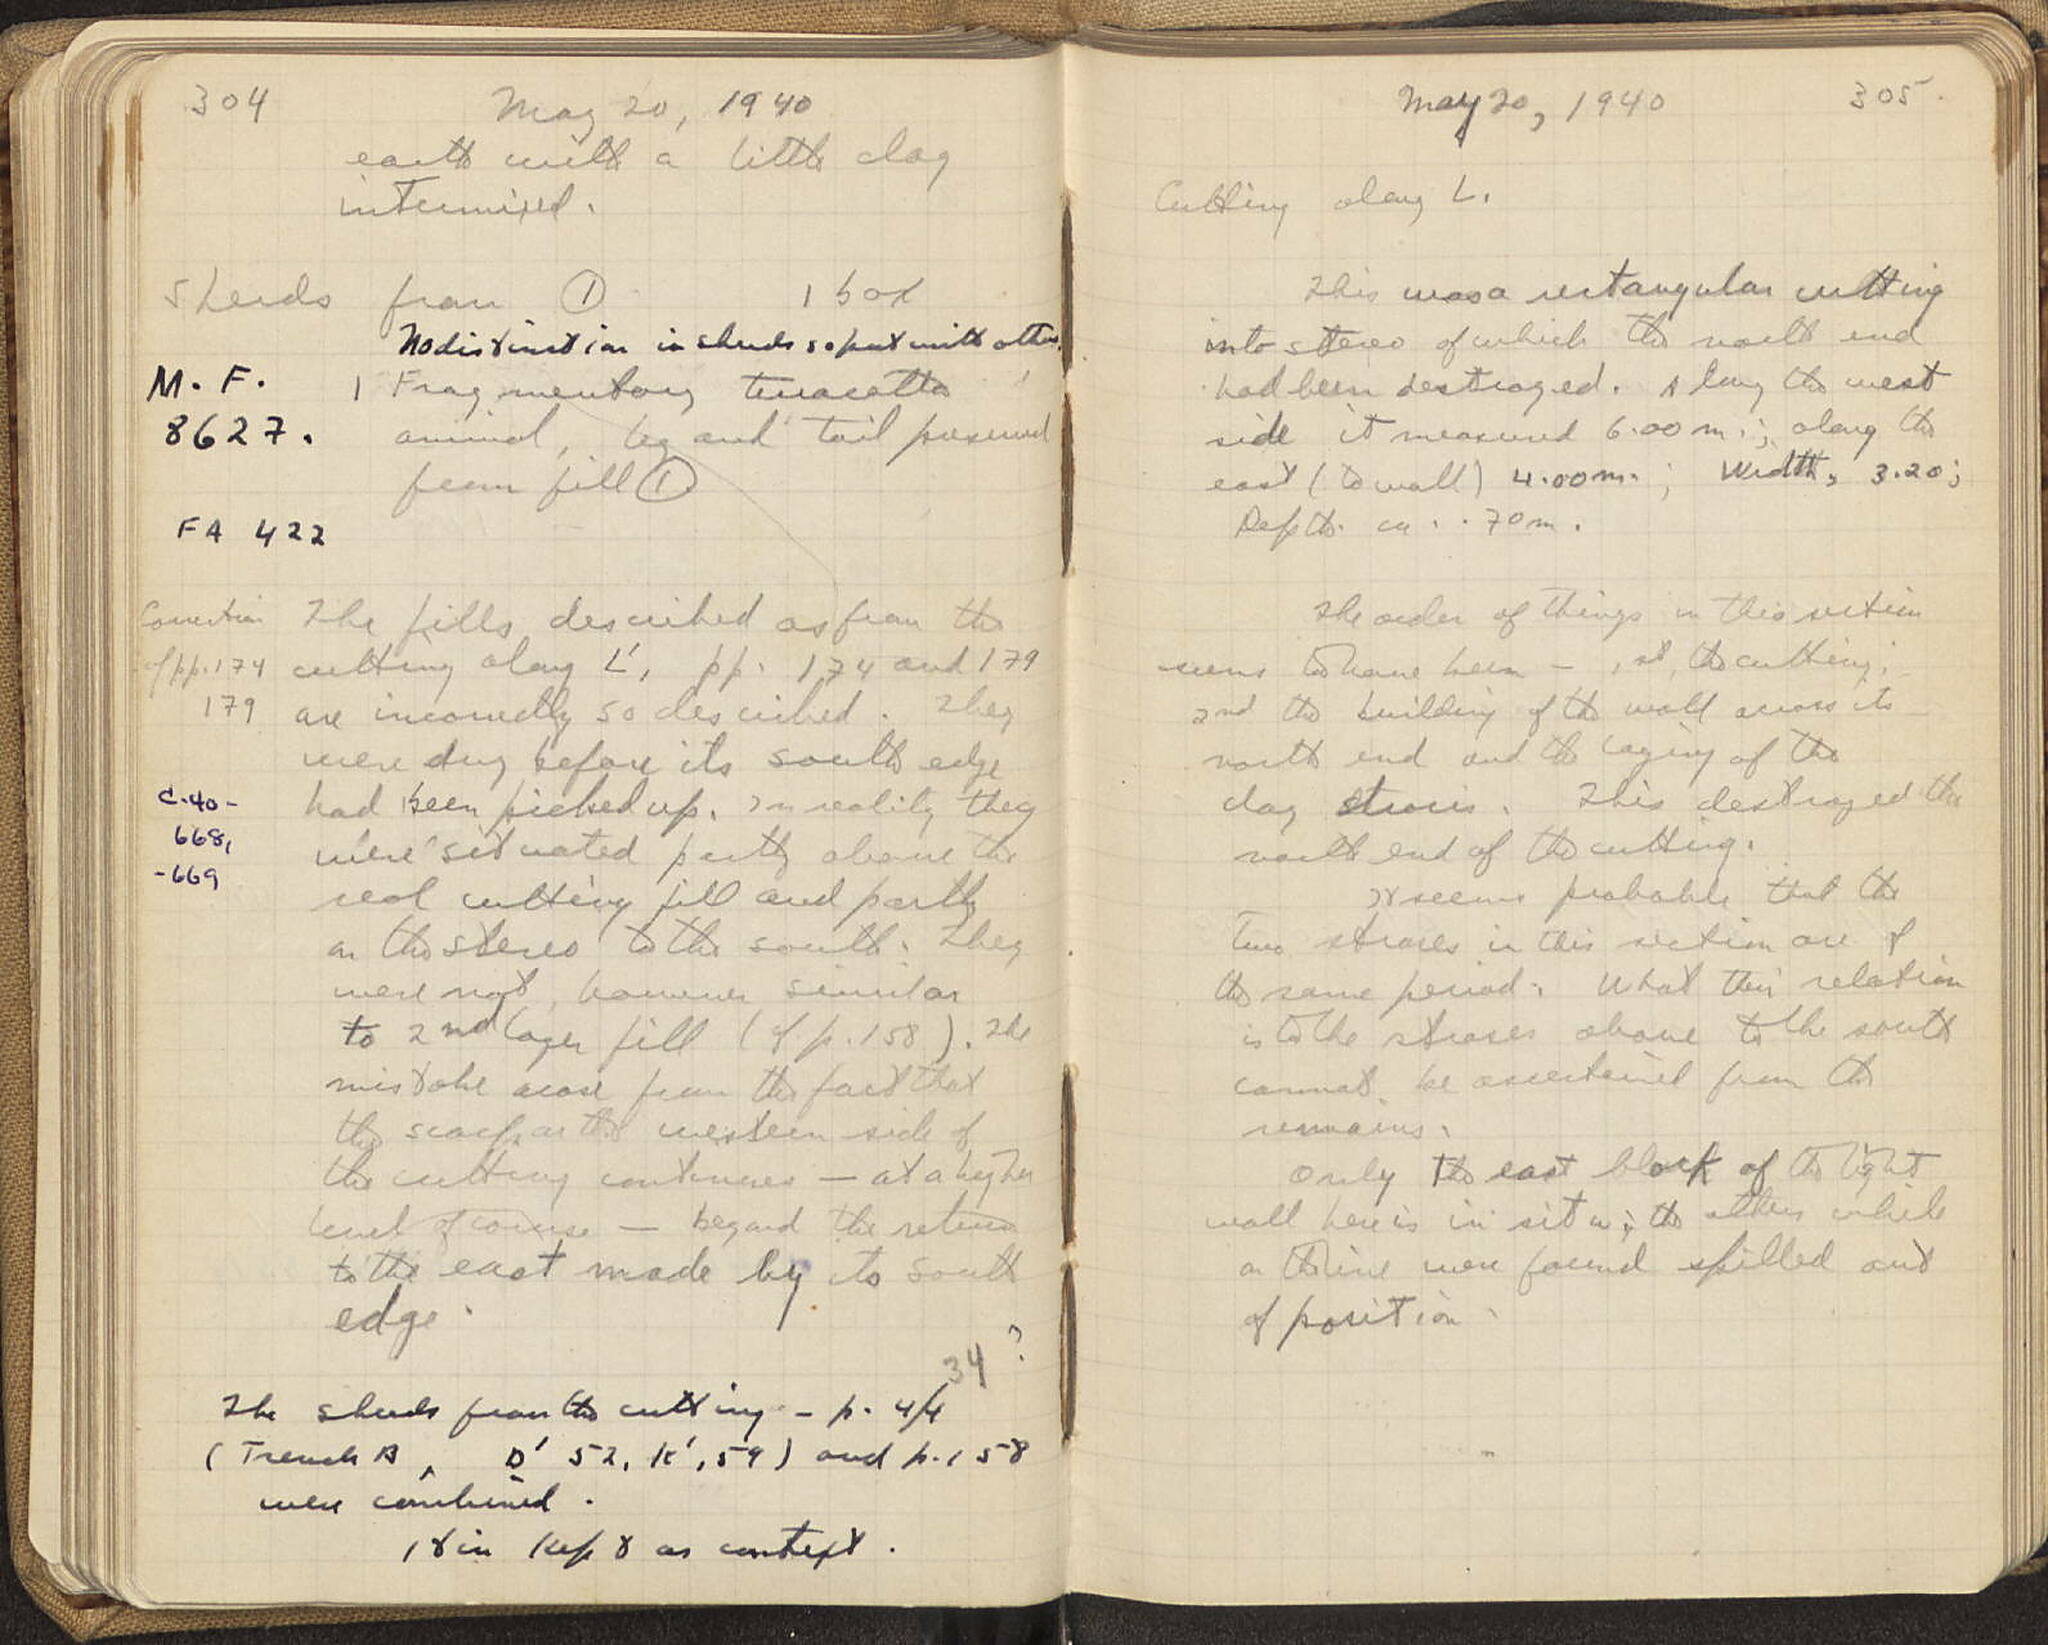 304 May 20, 1940
earth with a little clay
intermixed.
Sherds from ① 1 box
No distinction in sherds so put with others.
M. F. 1 Fragmentary terracotta
8627. animal, leg and tail preserved
from fill ①
FA 422
Correction The fills described as from the
of pp. 174 cutting along L', pp. 174 and 179
179 are incorrectly so described. They
were dug before its south edge
C-40- had been picked up. In reality they
668, were situated partly above the
-669 real cutting fill and partly
on the stereo to the south. They
were not, however similar
to 2nd layer fill (cf p. 158). The
mistake arose from the fact that
the scarp on the western side of
the cutting continues — at a higher
level of course — beyond the return
to the east made by its south
edge.
34 ?
The sherds from the cutting - p. 44
(Trench B, D' 52, K', 59) and p. 158
were combined.
1 tin kept as context.
May 20, 1940 305
Cutting along L.
This was a rectangular cutting
into stereo of which the north end
had been destroyed. Along the west
side it measured 6.00 m.; along the
east (to wall) 4.00 m. ; Width, 3.20;
Depth ca. .70 m.
The order of things in this section
seems to have been — 1st, the cutting;
2nd the building of the wall across its
north end and the laying of the
clay stroses. This destroyed the
north end of the cutting.
It seems probable that the
two stroses in this section are of
the same period. What their relation
is to the stroses above to the south
cannot be ascertained from the
remains.
Only the east block of the light
wall here is in situ; the others while
in line were found spilled out
of position.